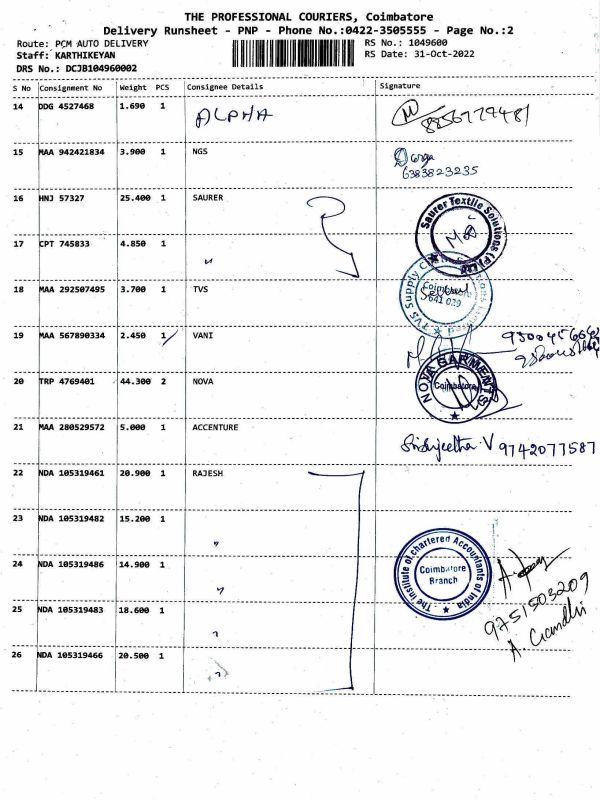 THE PROFESSIONAL COURIERS, Coimbatore
Delivery Runsheet - PNP - Phone No.:0422-3505555 - Page No.:2
Route: PCM AUTO DELIVERY
RS No.: 1049600
Staff: KARTHIKEYAN
RS Date: 31-Oct-2022
DRS No.: DCJB104960002
S No Consignment No Weight PCS Consignee Details Signature
14 DDG 4527468 1.690 1 ALPHA
8856777481
15 MAA 942421834 3.900 1 NGS Durga
6383823235
16 HNJ 57327 25.400 1 SAURER
Saurer Textile Solutions (P) Ltd
17 CPT 745833 4.850 1 "
18 MAA 292507495 3.700 1 TVS
TVS Supply Coimbatore 641 039
19 MAA 567890334 2.450 1 VANI
20 TRP 4769401 44.300 2 NOVA
NOVA GARMENTS Coimbatore
21 MAA 280529572 5.000 1 ACCENTURE
V 9742077587
22 NDA 105319461 20.900 1 RAJESH
23 NDA 105319482 15.200 1 "
24 NDA 105319486 14.900 1 "
The Institute of chartered Accountants of India. Coimbatore Branch
25 NDA 105319483 18.600 1 "
9751503209
A. Gandhi
26 NDA 105319466 20.500 1 "